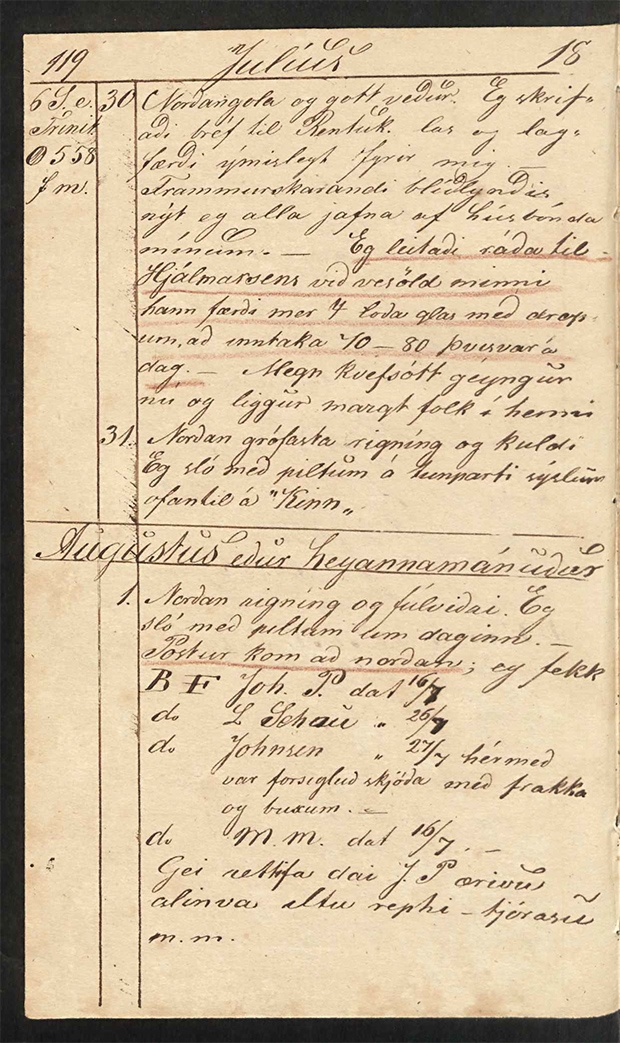 119 Júlíus 18
6 S. e. 30 Norðangola og gott veður. Eg skrif-
Trinit. aði bréf til Rentuk. las og lag-
558 færði ýmislegt fyrir mig. —
f m. Frammúrskarandi blíðlyndis
nýt eg alla jafna af húsbónda
mínum. — Eg leitaði ráða til
Hjálmarsens við vesöld minni
hann færði mer 4 loða glas með drop-
um, að inntaka 70 – 80 þvisvar á
dag. — Megn kvefsótt geyngur
nú og liggur margt folk í henni
31. Norðan grófasta rigning og kuldi
Eg sló með piltum á tunparti sýslum
ofantil á "Kinn„
Augústus eður heyannamánuður
1. Norðan rigning og fúlviðri. Eg
sló með piltum um daginn. —
Postur kom að norðan; eg fekk
B F Joh. P. dat 16/7
do L Schau „ 26/7
do Johnsen „ 27/7 hérmeð
var forsigluð skjóða með frakka
og buxum. —
do M. M. dat 16/7. —
Gei rettifa dai J. P ærivu
alinva iltu rephi – tjórasu
m. m.